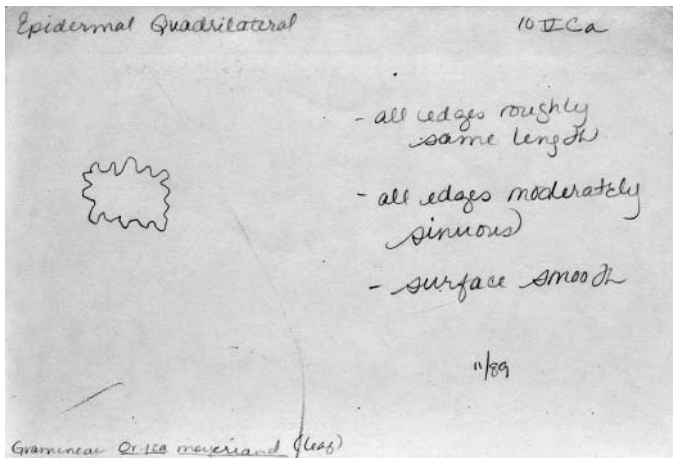 Epidermal Quadrilateral
10 II Ca
- all edges roughly
same length
- all edges moderately
sinuous
- surface smooth
11/89
Gramineae Oryza meyeriana (leaf)